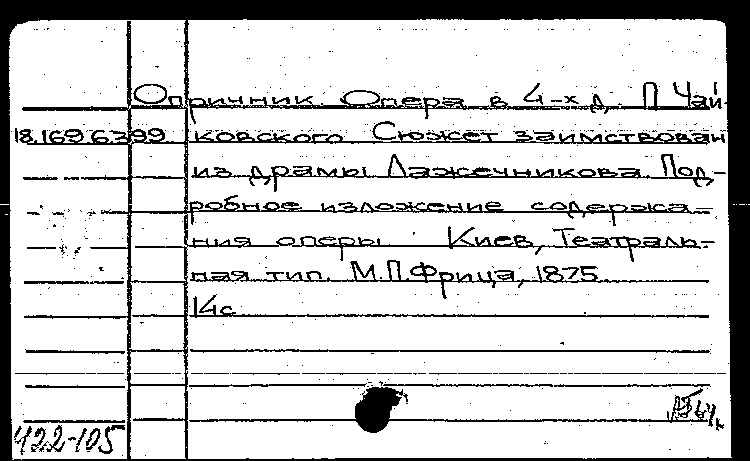 Опричник. Опера в 4-х д. П. Чай-
18.169.6.399 ковского. Сюжет заимствован
из драмы Лажечникова. Под-
робное изложение содержа-
ния оперы. Киев, Театраль-
ная тип. М.П.Фрица, 1875.
14с.
422-105